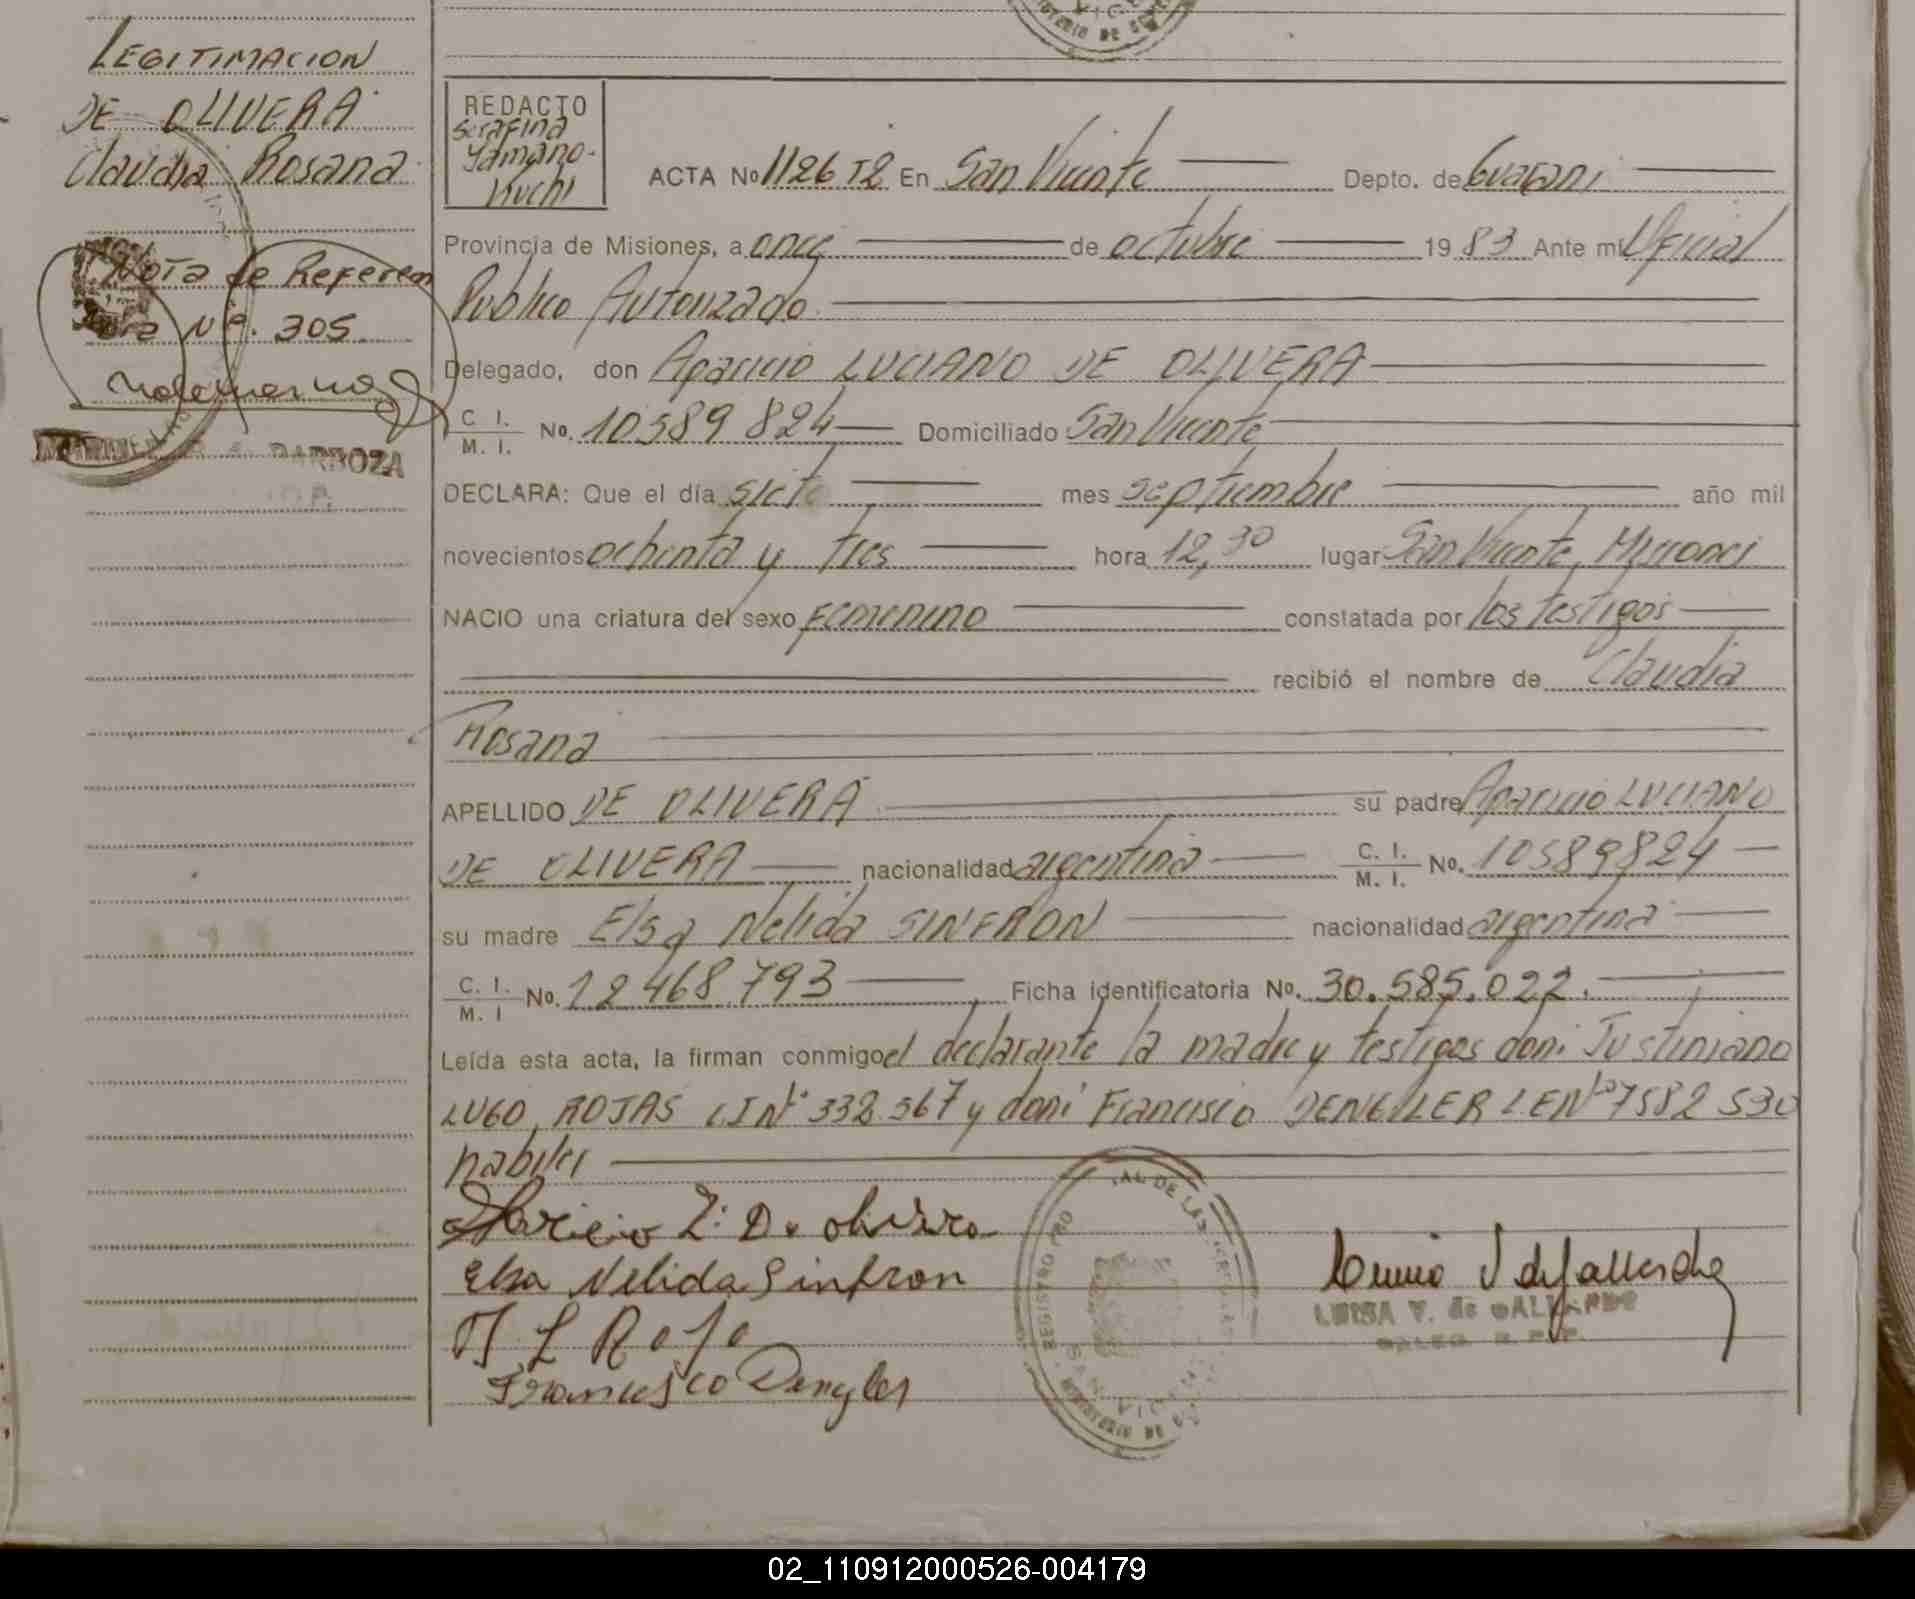 LEGITIMACION
DE OLIVERA
Claudia Rosana
Nota de Referen
cia Nº. 305
BARBOZA
REDACTO
Serafina
Yamano-
Kuchi
ACTA No 1126 T2 En San Vicente Depto. de Guaraní
Provincia de Misiones, a once de octubre 1983 Ante mí Oficial
Publico Autorizado
Delegado, don Aparicio LUCIANO DE OLIVERA
C. I. / M. I. No. 10589824 Domiciliado San Vicente
DECLARA: Que el día siete mes septiembre año mil
novecientos ochenta y tres hora 12,30 lugar San Vicente, Misiones
NACIO una criatura del sexo Femenino constatada por los testigos
recibió el nombre de Claudia
Rosana
APELLIDO DE OLIVERA su padre Aparicio LUCIANO
DE OLIVERA nacionalidad argentina C. I. / M. I. No. 10589824
su madre Elsa Nelida SINFRON nacionalidad argentina
C. I. / M. I No. 12468793 Ficha identificatoria No. 30.585.022.
Leída esta acta, la firman conmigo el declarante la madre y testigos don: Justiniano
LUGO ROJAS CI Nº 332.567 y don: Francisco DENGLER LE Nº 7582530
habiles
Aparicio L. De olivera
Elsa Nelida Sinfron
J L Roja
Francisco Dengler
REGISTRO PRO AL DE LAS PERSONAS
SAN VICENTE
LUISA V. de GALLARDO
02_110912000526-004179